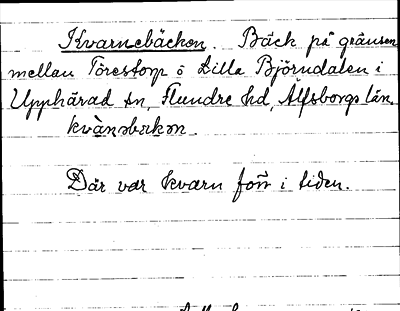 Kvarnebäcken. Bäck på gränsen
mellan Törestorp o Lilla Björndalen i
Upphärad sn, Flundre hd, Älfsborgs län.
Där var kvarn förr i tiden.